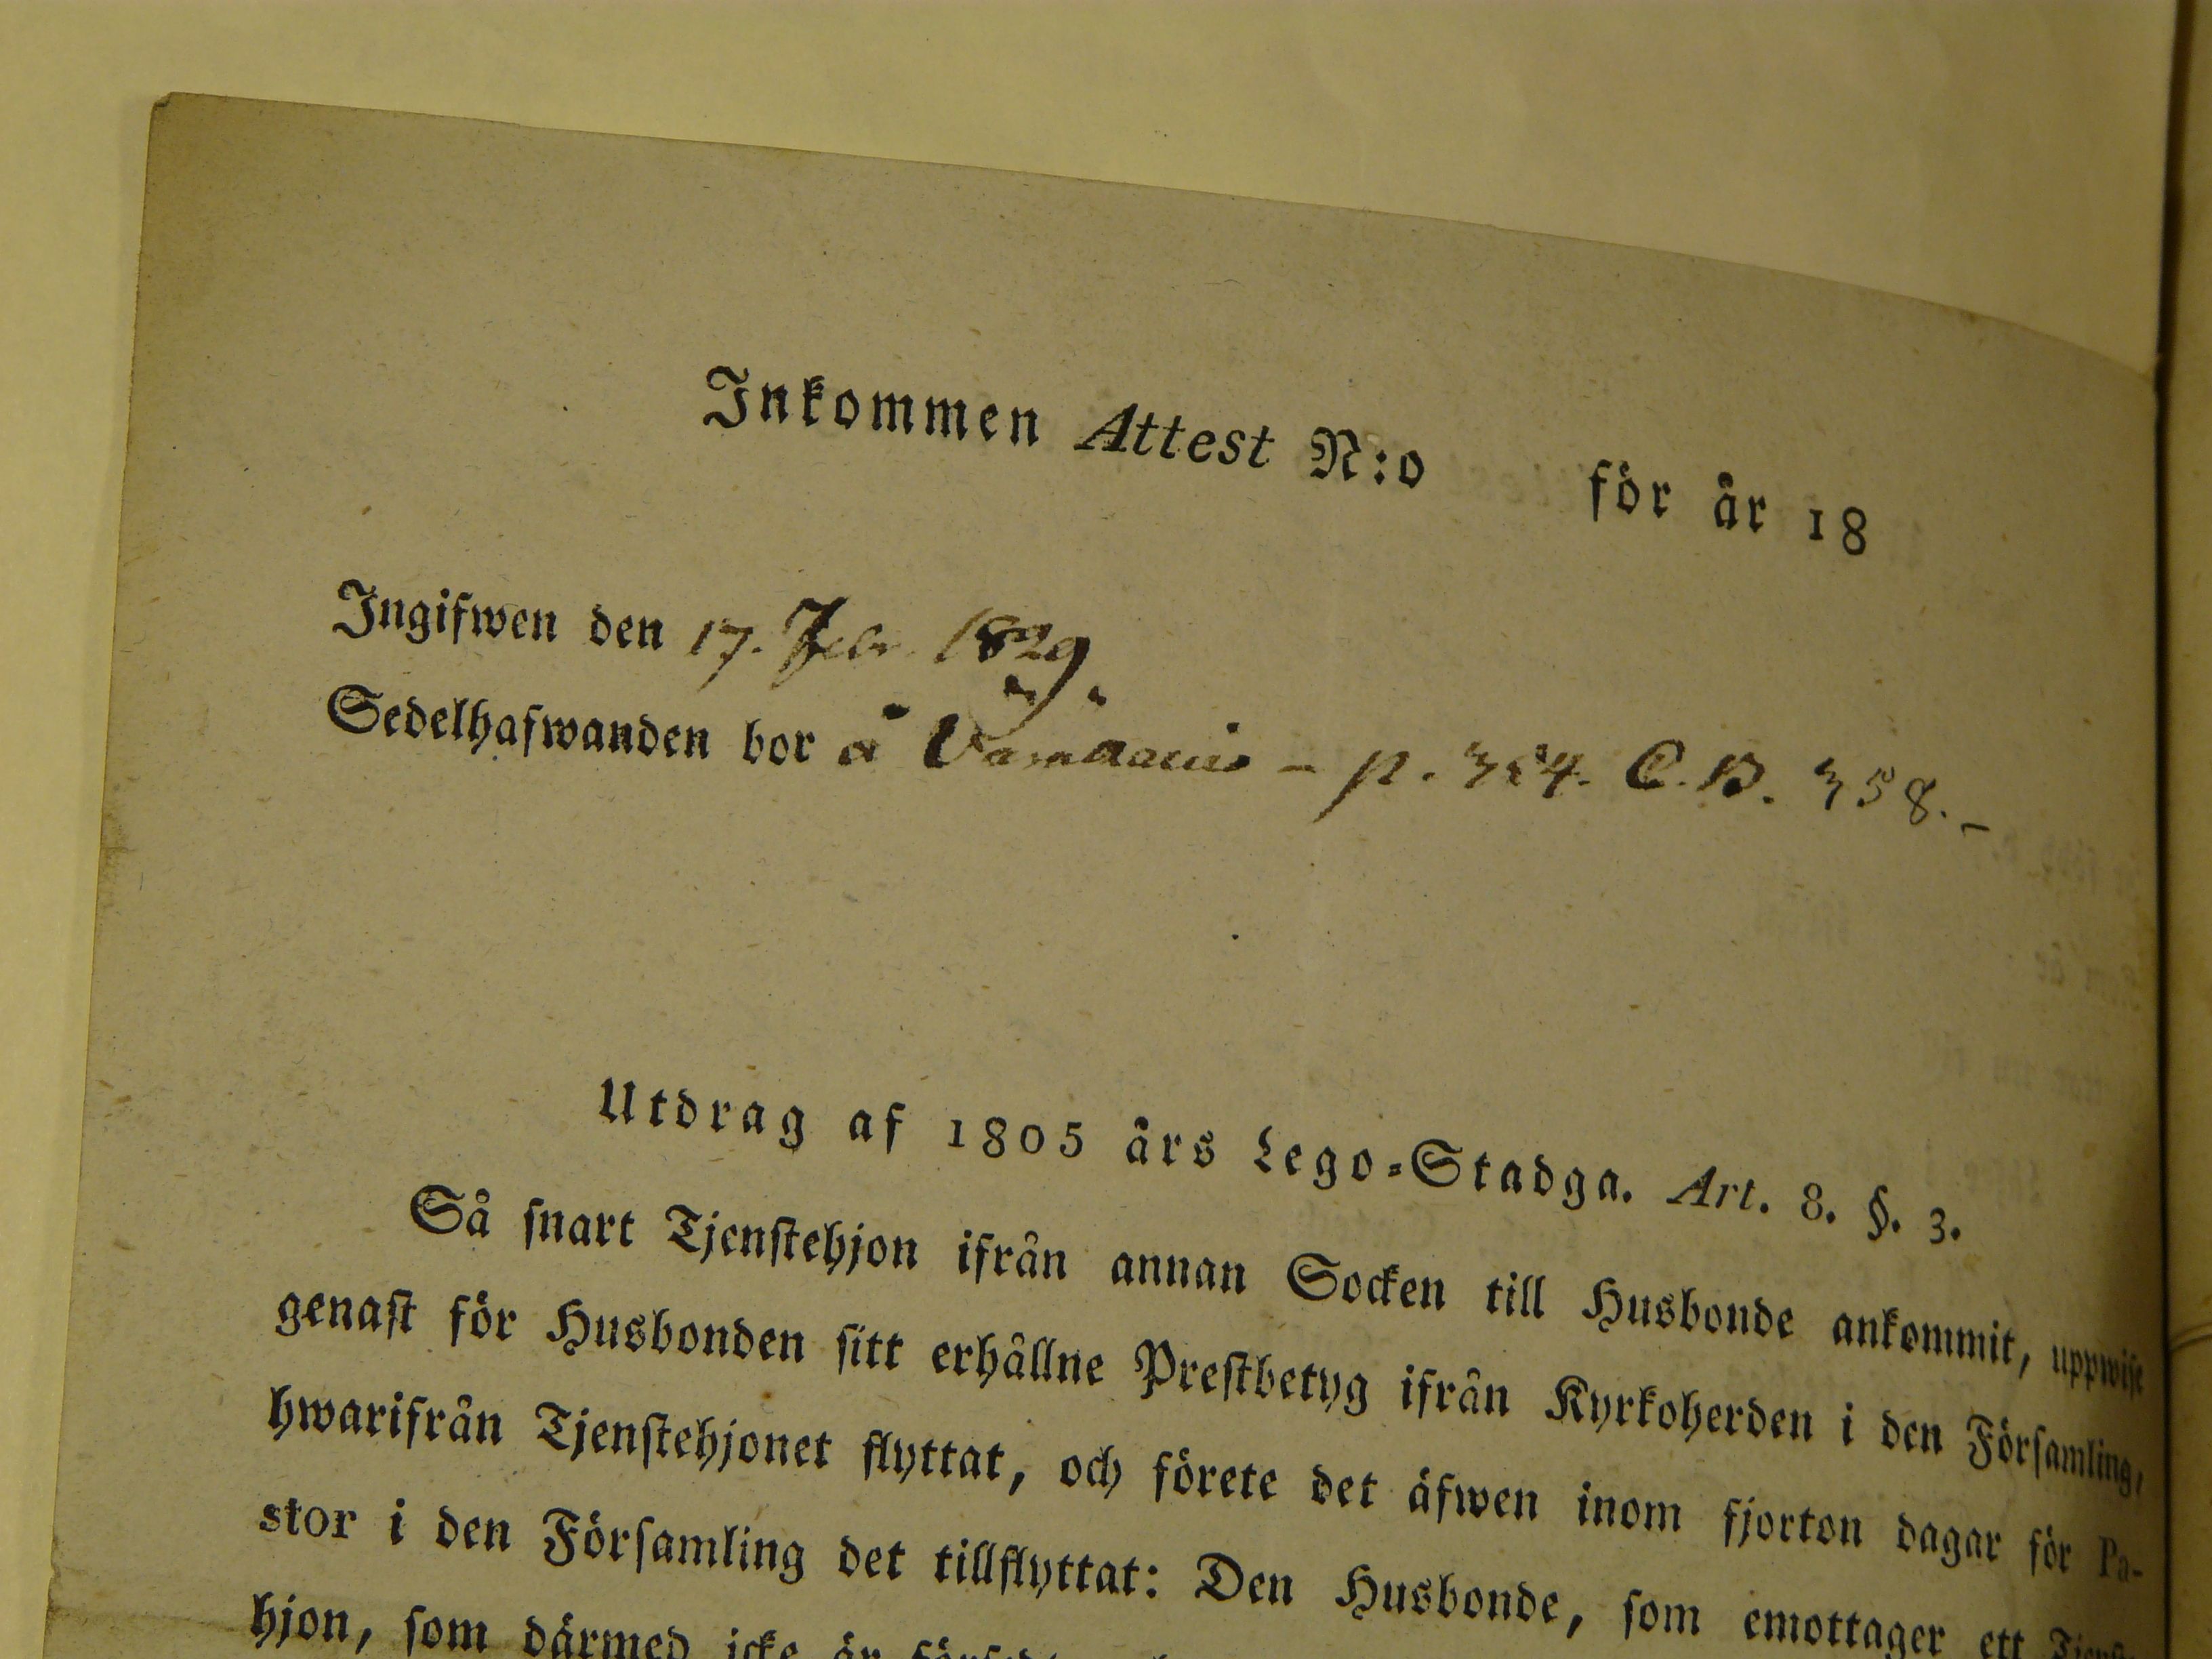 Inkommen Attest N:o för år 18
Ingifwen den 17. Febr. 1829.
Sedelhafwanden bor å - p. 354. C.B. 358. -
Utdrag af 1805 års Lego-Stadga. Art. 8. §. 3.
Så snart Tjenstehjon ifrån annan Socken till Husbonde ankommit, uppwise
genast för Husbonden sitt erhållne Prestbetyg ifrån Kyrkoherden i den Församling,
hwarifrån Tjenstehjonet flyttat, och förete det äfwen inom fjorton dagar för Pa-
stor i den Församling det tillflyttat: Den Husbonde, som emottager ett
hjon, som därmed icke är